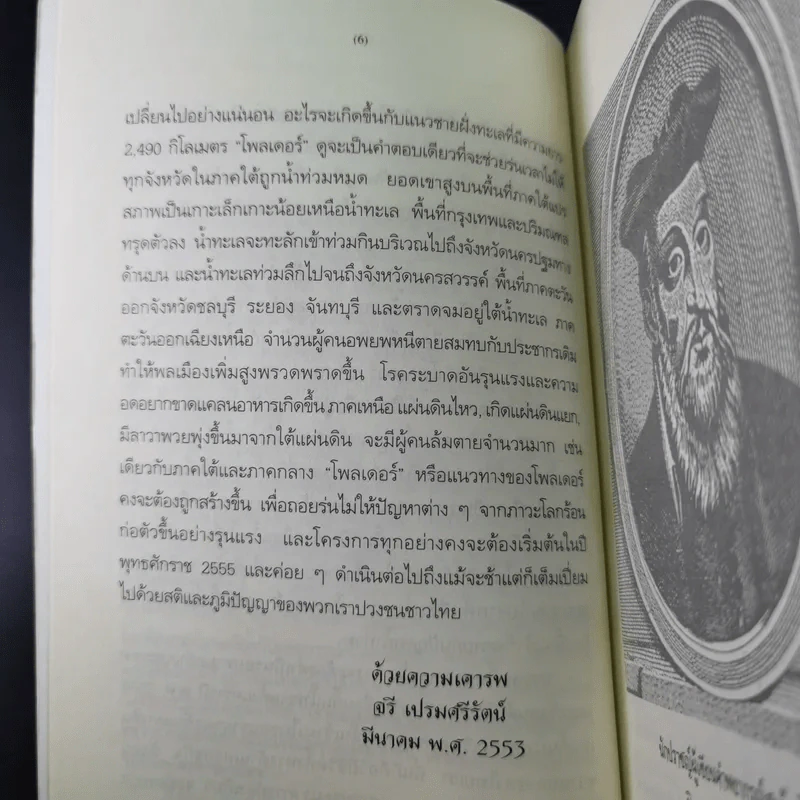 (6)
เปลี่ยนไปอย่างแน่นอน อะไรจะเกิดขึ้นกับแนวชายฝั่งทะเลที่มีความยาว
2,490 กิโลเมตร "โพลเดอร์" ดูจะเป็นคำตอบเดียวที่จะช่วยร่นเวลาไม่ให้
ทุกจังหวัดในภาคใต้ถูกน้ำท่วมหมด ยอดเขาสูงบนพื้นที่ภาคใต้แปร
สภาพเป็นเกาะเล็กเกาะน้อยเหนือน้ำทะเล พื้นที่กรุงเทพและปริมณฑล
ทรุดตัวลง น้ำทะเลจะทะลักเข้าท่วมกินบริเวณไปถึงจังหวัดนครปฐมทาง
ด้านบน และน้ำทะเลท่วมลึกไปจนถึงจังหวัดนครสวรรค์ พื้นที่ภาคตะวัน
ออกจังหวัดชลบุรี ระยอง จันทบุรี และตราดจมอยู่ใต้น้ำทะเล ภาค
ตะวันออกเฉียงเหนือ จำนวนผู้คนอพยพหนีตายสมทบกับประชากรเดิม
ทำให้พลเมืองเพิ่มสูงพรวดพราดขึ้น โรคระบาดอันรุนแรงและความ
อดอยากขาดแคลนอาหารเกิดขึ้น ภาคเหนือ แผ่นดินไหว, เกิดแผ่นดินแยก,
มีลาวาพวยพุ่งขึ้นมาจากใต้แผ่นดิน จะมีผู้คนล้มตายจำนวนมาก เช่น
เดียวกับภาคใต้และภาคกลาง "โพลเดอร์" หรือแนวทางของโพลเดอร์
คงจะต้องถูกสร้างขึ้น เพื่อถอยร่นไม่ให้ปัญหาต่าง ๆ จากภาวะโลกร้อน
ก่อตัวขึ้นอย่างรุนแรง และโครงการทุกอย่างคงจะต้องเริ่มต้นในปี
พุทธศักราช 2555 และค่อย ๆ ดำเนินต่อไปถึงแม้จะช้าแต่ก็เต็มเปี่ยม
ไปด้วยสติและภูมิปัญญาของพวกเราปวงชนชาวไทย
ด้วยความเคารพ
จรี เปรมศรีรัตน์
มีนาคม พ.ศ. 2553